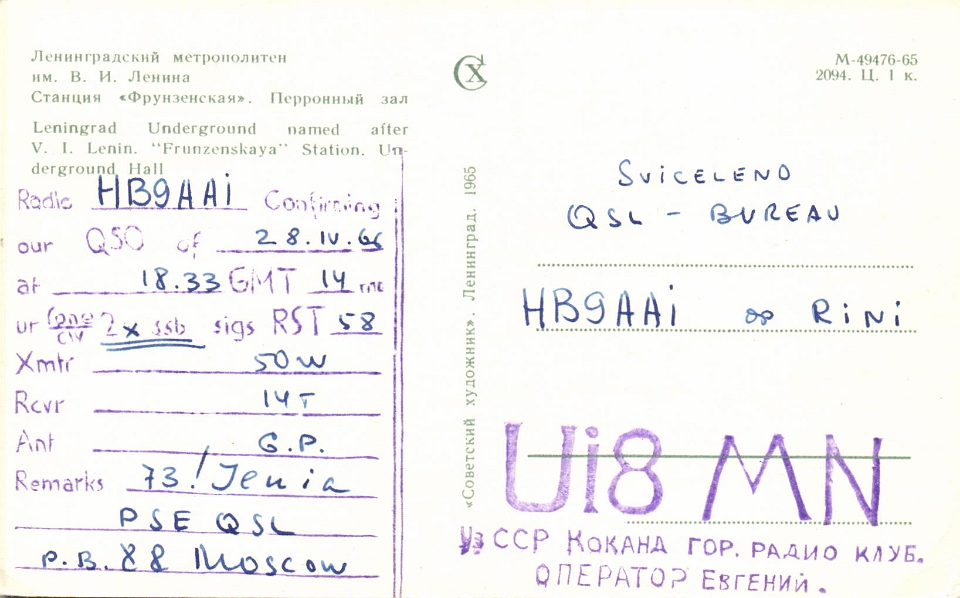 Ленинградский метрополитен
им. В. И. Ленина
Станция «Фрунзенская». Перронный зал
Leningrad Underground named after
V. I. Lenin. "Frunzenskaya" Station. Un-
derground Hall
Radio HB9AAi Confirming
our QSO of 28.IV.66
at 18.33 GMT 14 mc
ur fone cw 2x ssb sigs RST 58
Xmtr 50W
Rcvr 14T
Ant G.P.
Remarks 73! Jenia
PSE QSL
P.B. 88 Moscow
СХ
«Советский художник». Ленинград. 1965
М-49476-65
2094. Ц. 1 к.
SVICELEND
QSL - BUREAU
HB9AAi op RiNi
Ui8 MN
Уз ССР КОКАНД ГОР. РАДИО КЛУБ.
ОПЕРАТОР ЕВГЕНИЙ.